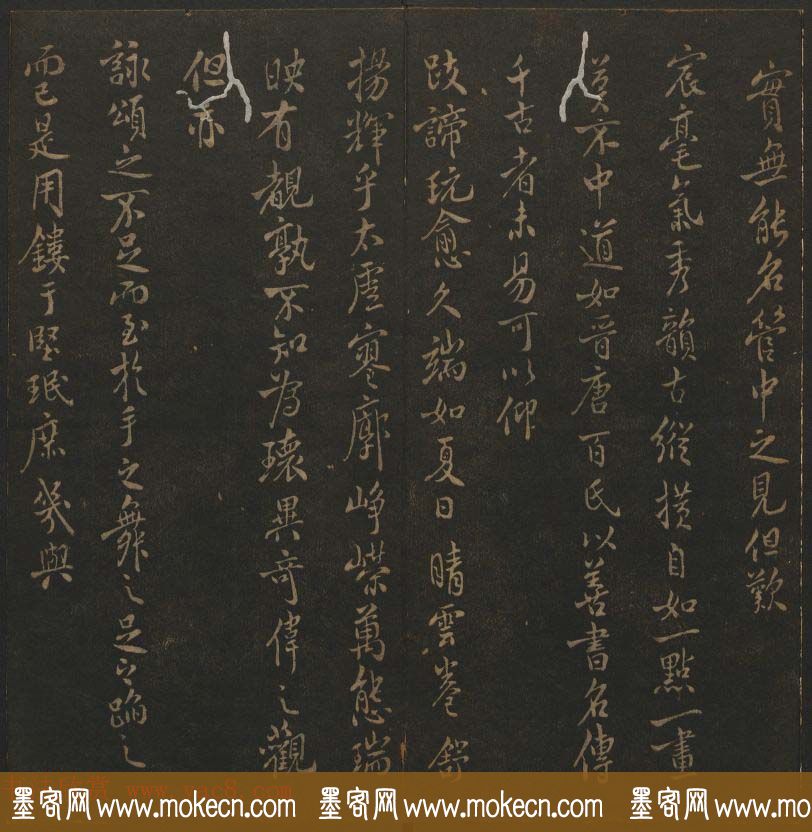 實無能名管中之見但歎
宸毫氣秀韻古縱横自如一點一畫
莫不中道如晉唐百氏以善書名傳
千古者未易可以仰
跂諦玩愈久端如夏日晴雲卷舒
揚輝乎太虛寥廓崢嶸萬態瑞
映有覩孰不知為瓌異奇偉之觀
但亦
詠頌之不足而至於手之舞之足之蹈之
而已是用鏤于堅珉庶幾與
墨客网 www.mokecn.com 墨客网 www.mokecn.com 墨客网 www.mo